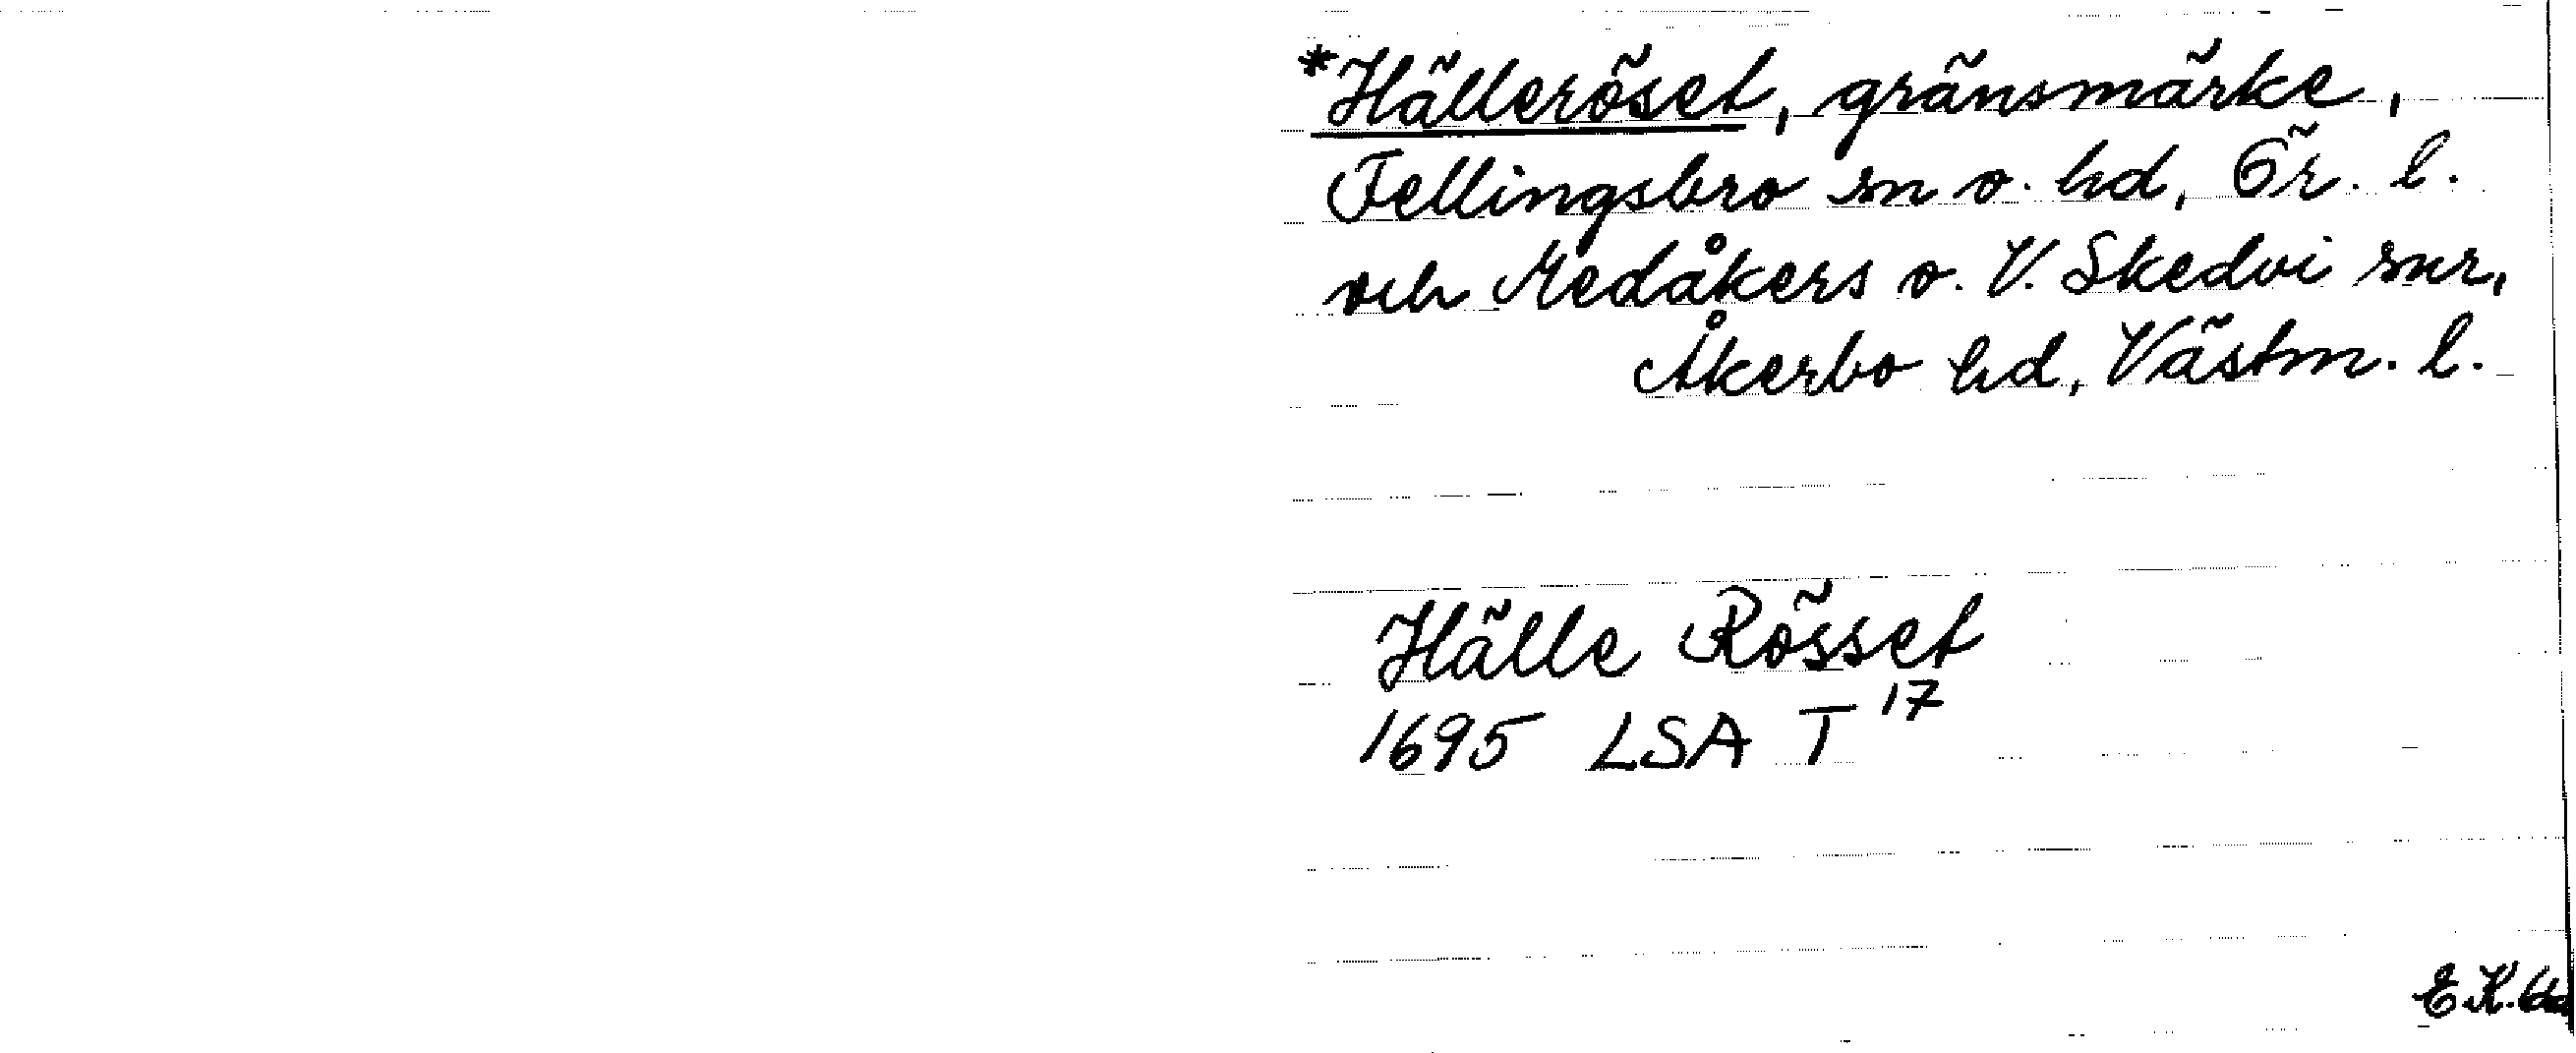 *Hälleröset, gränsmärke,
Fellingsbro sn o. hd, Ör. l.
och Medåkers o. V. Skedvi snr,
Åkerbo hd, Västm. l.
Hälle Rösset
1695 LSA T 17
E.K.